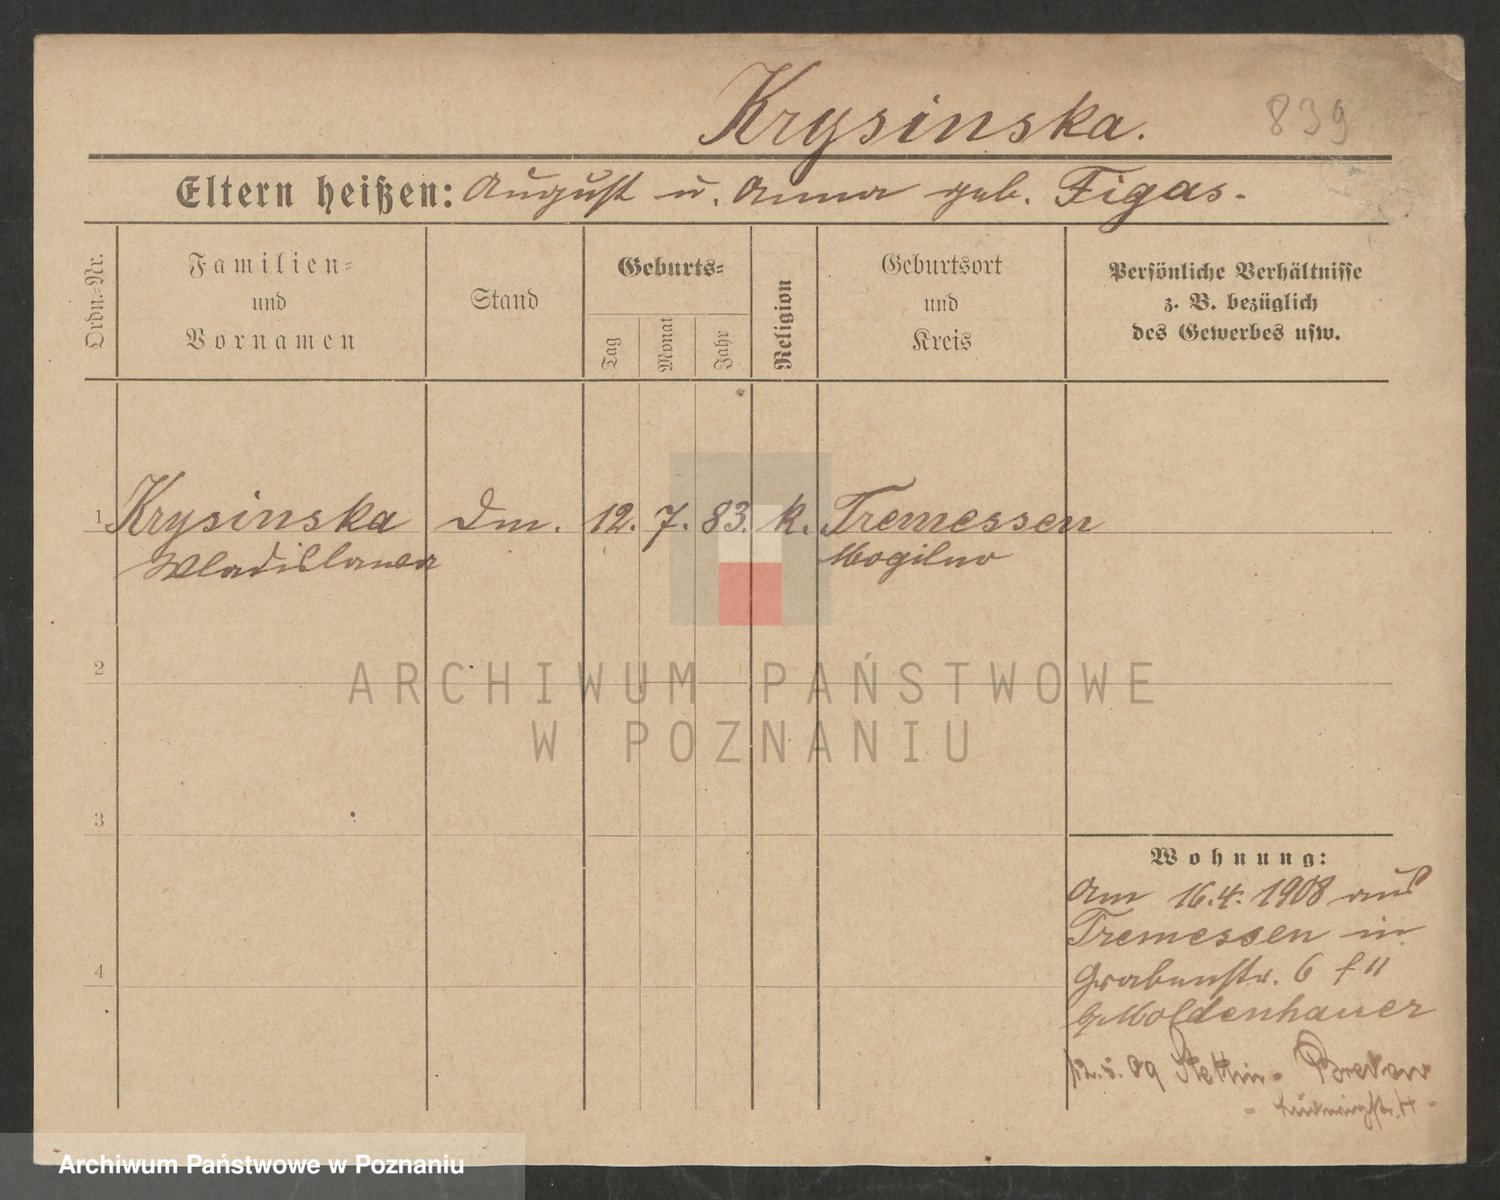 Krysinska.
839
Eltern heißen: August u. Anna geb. Figas.
Ordn.-Nr.
Familien-
und
Vornamen
Stand
Geburts-
Tag
Monat
Jahr
Religion
Geburtsort
und
Kreis
Persönliche Verhältnisse
z. B. bezüglich
des Gewerbes usw.
1 Krysinska Dm. 12. 7. 83. k. Tremessen
Wladislawa Mogilno
2
ARCHIWUM PAŃSTWOWE
W POZNANIU
3
Wohnung:
Am 16.4.1908 aus
Tremessen in
4
Grabenstr. 6 f II
Moldenhauer
12.5.09 Stettin- Bredow
- Ludwigstr. 4 -
Archiwum Państwowe w Poznaniu